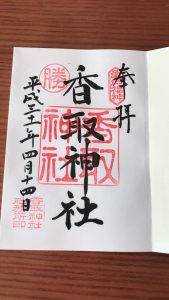 奉拝
香取神社
香取神社
勝
平成三十一年四月十四日